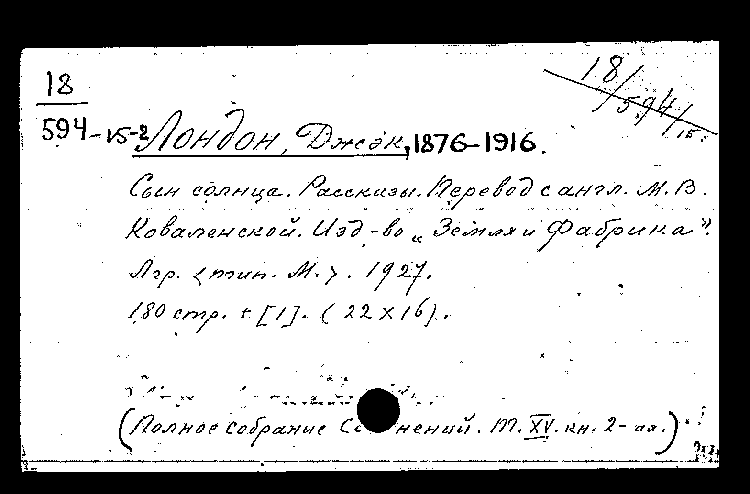 18
594-15-2
18/594/15
Лондон, Джэк, 1876-1916.
Сын солнца. Рассказы. Перевод с англ. М. В.
Коваленской. Изд-во „Земля и Фабрика".
Лгр. <тип. М.>. 1927.
180 стр. + [1]. (22 х 16).
(Полное собрание Со нений. Т. XV. кн. 2-ая.)